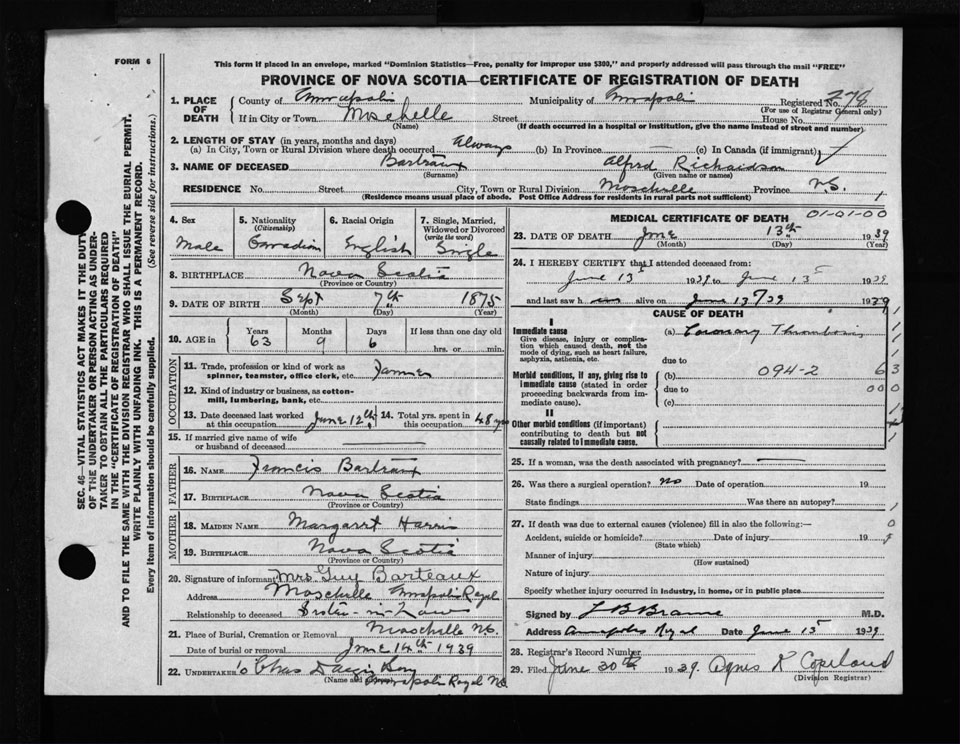 FORM 6
This form if placed in an envelope, marked "Dominion Statistics—Free, penalty for improper use $300," and properly addressed will pass through the mail "FREE"
PROVINCE OF NOVA SCOTIA—CERTIFICATE OF REGISTRATION OF DEATH
1. PLACE OF DEATH County of Annapolis Municipality of Annapolis Registered No. 278
(For use of Registrar General only)
If in City or Town Moschelle Street House No.
(Name) (If death occurred in a hospital or institution, give the name instead of street and number)
2. LENGTH OF STAY (in years, months and days)
(a) In City, Town or Rural Division where death occurred Always (b) In Province — (c) In Canada (if immigrant)
3. NAME OF DECEASED Barteaux Alfred Richardson
(Surname) (Given name or names)
RESIDENCE No. Street City, Town or Rural Division Moschelle Province N.S.
(Residence means usual place of abode. Post Office Address for residents in rural parts not sufficient)
4. Sex Male
5. Nationality (Citizenship) Canadian
6. Racial Origin English
7. Single, Married, Widowed or Divorced (write the word) Single
8. BIRTHPLACE Nova Scotia
(Province or Country)
9. DATE OF BIRTH Sept 7th 1875
(Month) (Day) (Year)
10. AGE in Years 63 Months 9 Days 6 If less than one day old hrs. or min.
OCCUPATION
11. Trade, profession or kind of work as spinner, teamster, office clerk, etc. Farmer
12. Kind of industry or business, as cotton-mill, lumbering, bank, etc.
13. Date deceased last worked at this occupation June 12th
14. Total yrs. spent in this occupation 48 yrs
15. If married give name of wife or husband of deceased
FATHER
16. NAME Francis Barteaux
17. BIRTHPLACE Nova Scotia
(Province or Country)
MOTHER
18. MAIDEN NAME Margaret Harris
19. BIRTHPLACE Nova Scotia
(Province or Country)
20. Signature of informant Mrs Guy Barteaux
Address Moschelle Annapolis Royal
Relationship to deceased Sister-in-Law
21. Place of Burial, Cremation or Removal Moschelle N.S.
Date of burial or removal June 14th 1939
22. UNDERTAKER'S Chas
(Name and Annapolis Royal N.S.
MEDICAL CERTIFICATE OF DEATH 01-01-00
23. DATE OF DEATH June 13th 1939
(Month) (Day) (Year)
24. I HEREBY CERTIFY that I attended deceased from:
June 13 1939 to June 13 1939
and last saw h im alive on June 13/39 1939
CAUSE OF DEATH
I
Immediate cause (a) Coronary Thrombosis
Give disease, injury or complication which caused death, not the mode of dying, such as heart failure, asphyxia, asthenia, etc.
due to
Morbid conditions, if any, giving rise to immediate cause (stated in order proceeding backwards from immediate cause). (b) 094-2 63
due to 000
(c)
II
Other morbid conditions (if important) contributing to death but not causally related to immediate cause.
25. If a woman, was the death associated with pregnancy? —
26. Was there a surgical operation? no Date of operation 19
State findings Was there an autopsy?
27. If death was due to external causes (violence) fill in also the following:—
Accident, suicide or homicide? Date of injury 19
(State which)
Manner of injury
(How sustained)
Nature of injury
Specify whether injury occurred in industry, in home, or in public place
Signed by L B Braine M.D.
Address Annapolis Royal Date June 15 1939
28. Registrar's Record Number
29. Filed June 30th 1939. Agnes K Copeland
(Division Registrar)
SEC. 46—VITAL STATISTICS ACT MAKES IT THE DUTY
OF THE UNDERTAKER OR PERSON ACTING AS UNDER-
TAKER TO OBTAIN ALL THE PARTICULARS REQUIRED
IN THE "CERTIFICATE OF REGISTRATION OF DEATH"
AND TO FILE THE SAME WITH THE DIVISION REGISTRAR WHO SHALL ISSUE THE BURIAL PERMIT.
WRITE PLAINLY WITH UNFADING INK. THIS IS A PERMANENT RECORD.
Every item of information should be carefully supplied. (See reverse side for instructions.)